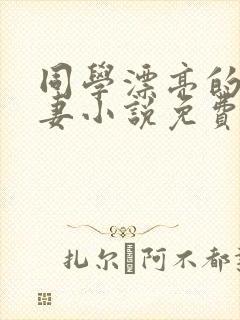 同學漂亮的
妻小說免費
扎尔阿不都